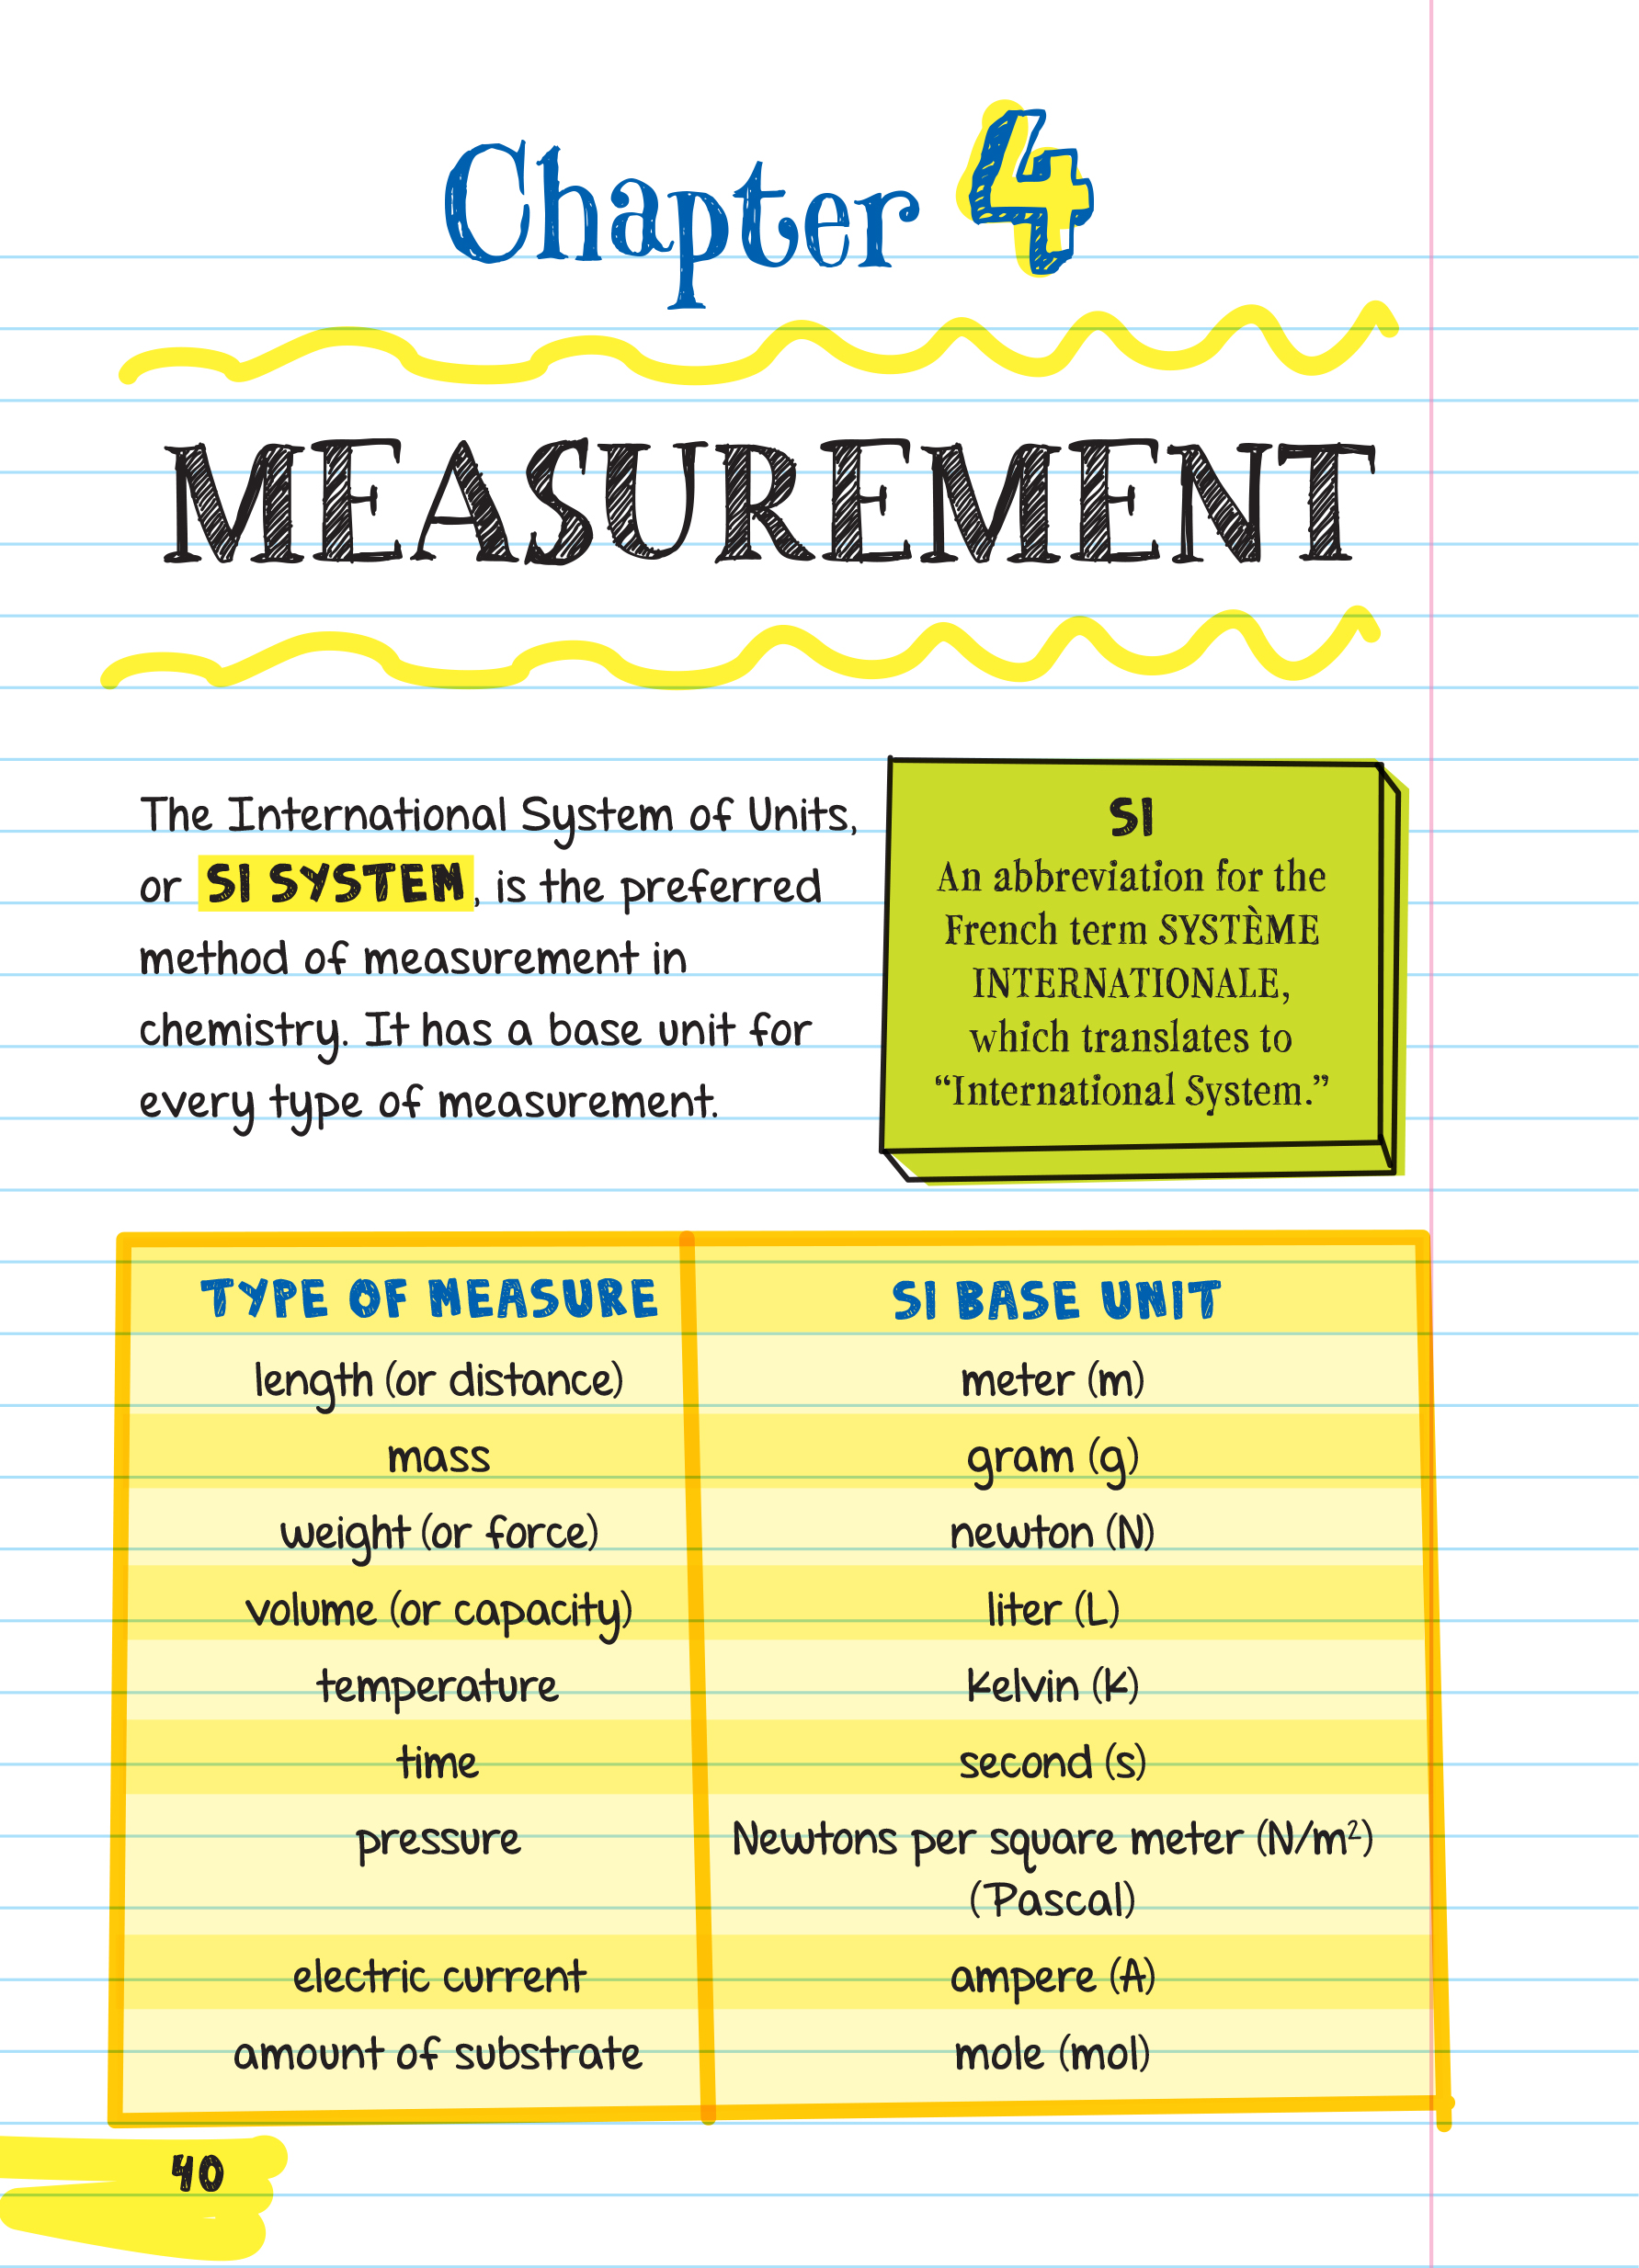 Chapter 4
MEASUREMENT
The International System of Units,
or SI SYSTEM, is the preferred
method of measurement in
chemistry. It has a base unit for
every type of measurement.
SI
An abbreviation for the
French term SYSTÈME
INTERNATIONALE,
which translates to
“International System.”
TYPE OF MEASURE SI BASE UNIT
length (or distance) meter (m)
mass gram (g)
weight (or force) newton (N)
volume (or capacity) liter (L)
temperature Kelvin (K)
time second (s)
pressure Newtons per square meter (N/m²)
(Pascal)
electric current ampere (A)
amount of substrate mole (mol)
40